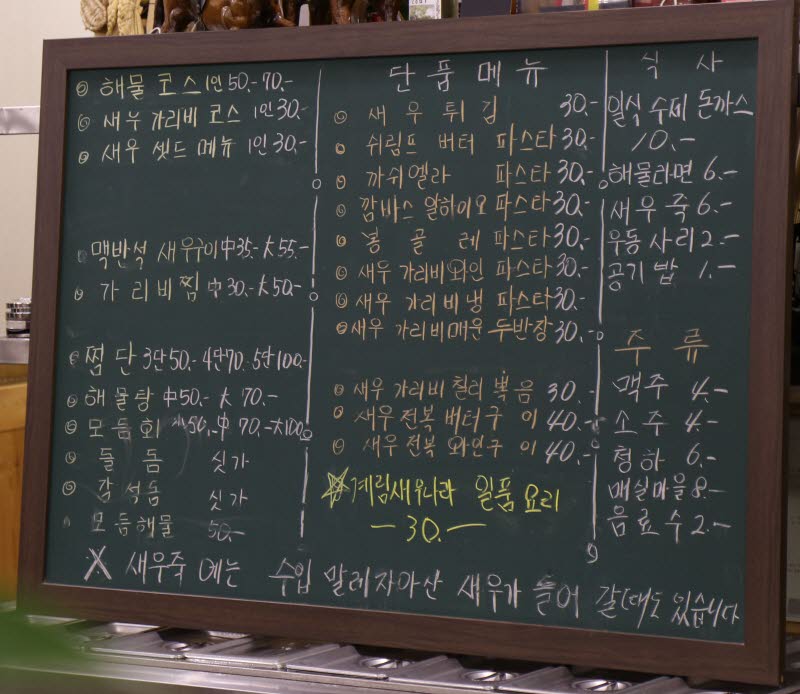 해물 코스 1인 50.-70.-
새우 가리비 코스 1인 30.-
새우 셋드 메뉴 1인 30.-
맥반석 새우구이 中35.- 大55.-
가리비찜 中30.- 大50.-
찜 단 3단50.- 4단70. 5단100.-
해물탕 中50.- 大 70.-
모듬회 小50.- 中 70.- 大100.
돌 돔 싯가
강석돔 싯가
모듬해물 50.-
단품메뉴
새우튀김 30.-
쉬림프 버터 파스타 30.-
까쉬엘라 파스타 30.-
깜바스 알하이오 파스타 30.-
봉골레 파스타 30.-
새우 가리비와인 파스타 30.-
새우 가리비냉 파스타 30.-
새우 가리비매운 두반장 30.-
새우 가리비 칠리 볶음 30.-
새우 전복 버터구이 40.-
새우 전복 와인구이 40.-
계림새우나라 일품요리
-30.-
식사
일식 수제 돈까스
10.-
해물라면 6.-
새우죽 6.-
우동사리 2.-
공기밥 1.-
주류
맥주 4.-
소주 4.-
청하 6.-
매실마을 8.-
음료수 2.-
X 새우죽 에는 수입 말레자아산 새우가 들어 갈때도 있습니다